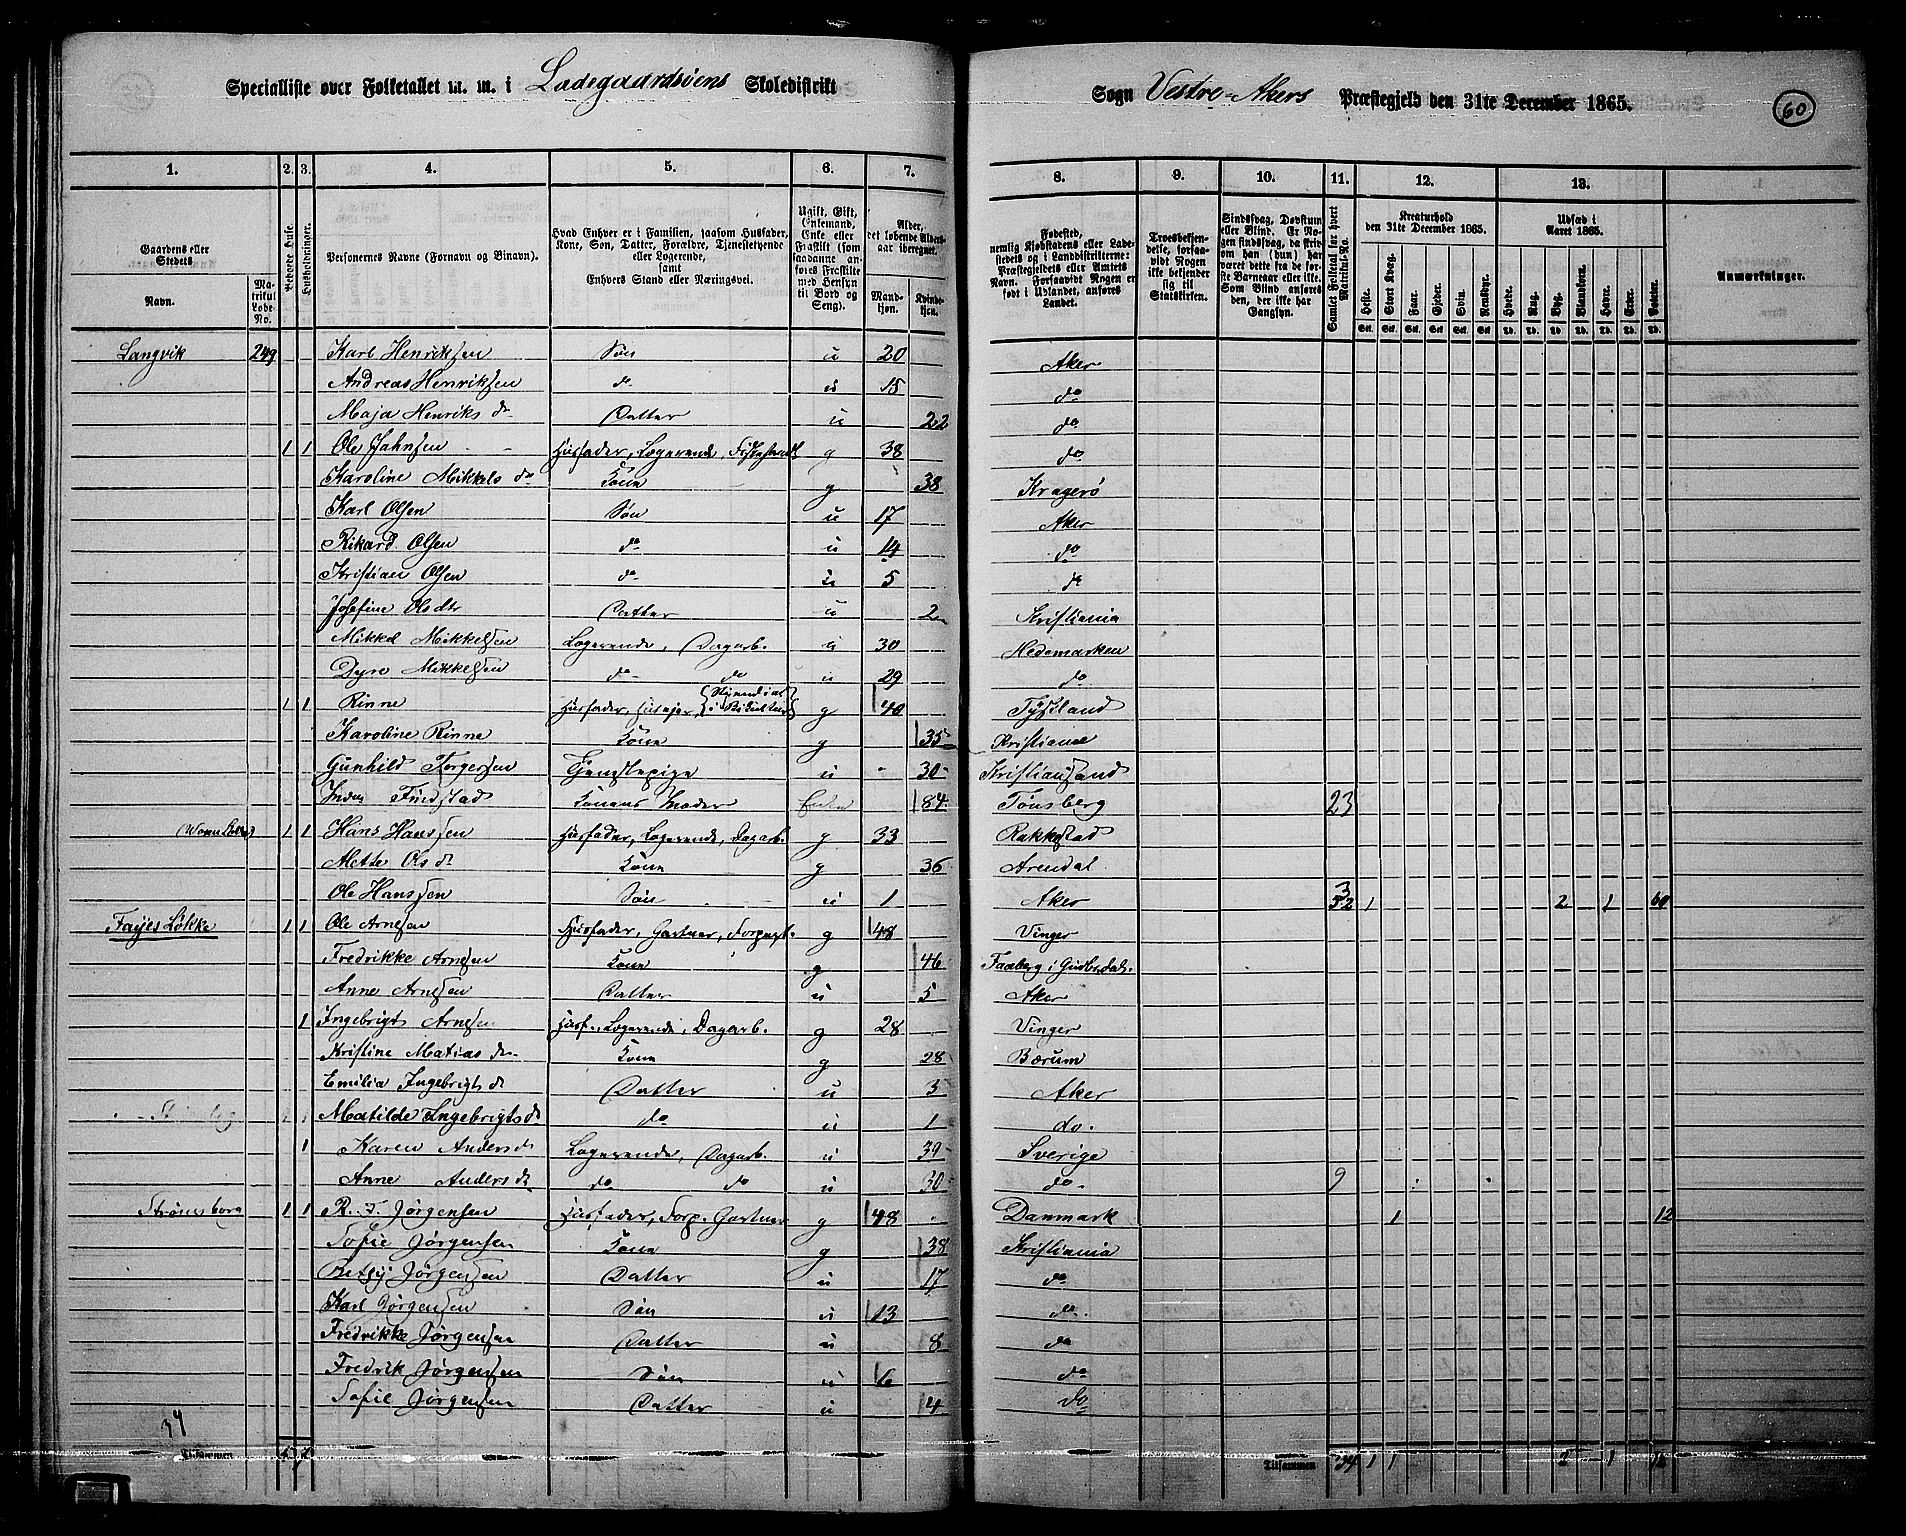 Specialliste over Folketallet m. m. i Ladegaardsöens Skoledistrikt
Sogn Vestre-Akers Præstegjeld den 31te December 1865.
60
1. 2. 3. 4. 5. 6. 7. 8. 9. 10. 11. 12. 13.
Gaardens eller Stedets
Navn.
Matrikul Løbe-No.
Beboede Huse.
Husholdninger.
Personernes Navne (Fornavn og Binavn).
Hvad Enhver er i Familien, saasom Husfader, Kone, Søn, Datter, Forældre, Tjenestetyende eller Logerende, samt Enhvers Stand eller Næringsvei.
Ugift, Gift, Enkemand, Enke eller Fraskilt (som saadanne anføres Fraskilte med Hensyn til Bord og Seng).
Alder, det løbende Aldersaar iberegnet.
Mandkjøn. Kvindekjøn.
Fødested, nemlig Kjøbstadens eller Ladestedets og i Landdistrikterne: Præstegjeldets eller Amtets Navn. Forsaavidt Nogen er født i Udlandet, anføres Landet.
Troesbekjendelse, forsaavidt Nogen ikke bekjender sig til Statskirken.
Sindssvag, Døvstum eller Blind. Er Nogen sindssvag, da skrives om han (hun) har været dette fra de første Barneaar eller ikke. Som Blind anføres den, der ikke har Gangsyn.
Samlet Folketal for hvert Matrikul-No.
Kreaturhold den 31te December 1865.
Heste. Stort Kvæg. Faar. Gjeder. Svin. Rensdyr.
Udsæd i Aaret 1865.
Hvede. Rug. Byg. Blandkorn. Havre. Erter. Poteter.
Anmærkninger.
Langvik 249 Karl Henriksen Søn u 20 Aker
Andreas Henriksen do u 15 do
Maja Henriks dr Datter u 22 do
1 1 Ole Jahnsen Husfader, Logerende, g 38 do
Karoline Mikkels dr Kone g 38 Kragerö
Karl Olsen Søn u 17 Aker
Rikard Olsen do u 14 do
Kristian Olsen do u 5 do
Josefine Olsdtr Datter u 2 Kristiania
Mikkel Mikkelsen Logerende, Dagarb. u 30 Hedemarken
Dyre Mikkelsen do do u 29 do
1 1 Rinne Husfader, Huseier, g 40 Tydskland
Karoline Rinne Kone g 35 Kristiania
Gunhild Torgersen Tjenstepige u 30 Kristiansand
Findstad Konens Moder Enke 84 Tønsberg 23
1 1 Hans Hanssen Husfader, Logerende, Dagarb. g 33 Rakkestad
Mette Ols dr Kone g 36 Arendal
Ole Hanssen Søn u 1 Aker 3 52 1 2 1 60
Fayes Løkke 1 1 Ole Arnesen Husfader, Gartner, Forpagt. g 48 Vinger
Fredrikke Arnesen Kone g 46 Faaberg i Gudbr.dal.
Anne Arnesen Datter u 5 Aker
1 Ingebrigt Arnesen Husf., Logerende, Dagarb. g 28 Vinger
Kristine Matias dr Kone g 28 Bærum
Emilia Ingebrigts dr Datter u 3 Aker
Matilde Ingebrigts dr do u 1 do.
1 Karen Anders dr Logerende, Dagarb. u 39 Sverige
Anne Anders dr do do u 30 do. 9
Strömsborg 1 1 R. F. Jörgensen Husfader, Forp. Gartner g 48 Danmark 1 12
Sofie Jörgensen Kone g 38 Kristiania
Betsy Jörgensen Datter u 17 do
Karl Jörgensen Søn u 13 do.
Fredrikke Jörgensen Datter u 8 do
Fredrik Jörgensen Søn u 6 do
Sofie Jörgensen Datter u 4 do
34
Tilsammen
Tilsammen 34 1 1 2 1